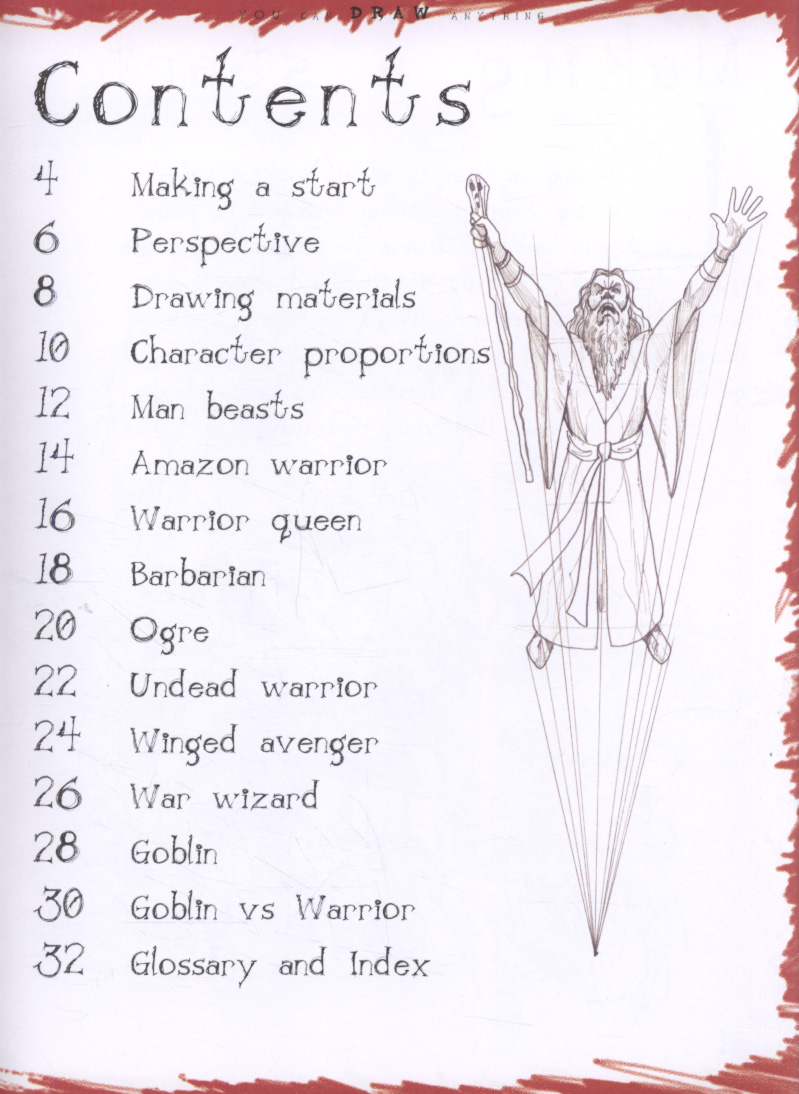 YOU CAN DRAW ANYTHING
Contents
4 Making a start
6 Perspective
8 Drawing materials
10 Character proportions
12 Man beasts
14 Amazon warrior
16 Warrior queen
18 Barbarian
20 Ogre
22 Undead warrior
24 Winged avenger
26 War wizard
28 Goblin
30 Goblin vs Warrior
32 Glossary and Index